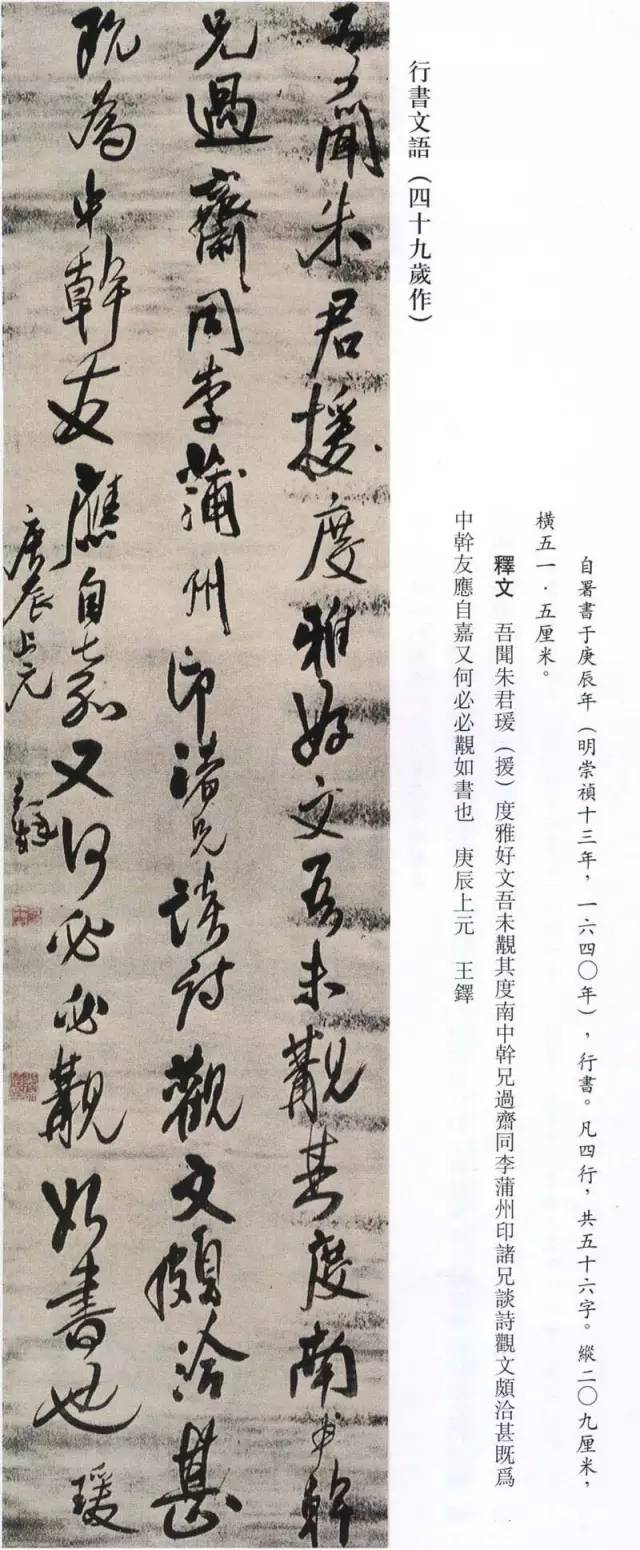 行書文語（四十九歲作）
自署書于庚辰年（明崇禎十三年，一六四〇年），行書。凡四行，共五十六字。縱二〇九厘米，
橫五一·五厘米。
釋文　吾聞朱君瑗（援）度雅好文吾未覯其度南中幹兄過齋同李蒲州印諸兄談詩觀文頗洽甚既爲
中幹友應自嘉又何必必覯如書也　庚辰上元　王鐸
吾聞朱君援度雅好文吾未覯其度南中幹
兄過齋同李蒲州印諸兄談詩觀文頗洽甚
既為中幹友應自嘉又何必必覯如書也 瑗
庚辰上元 王鐸